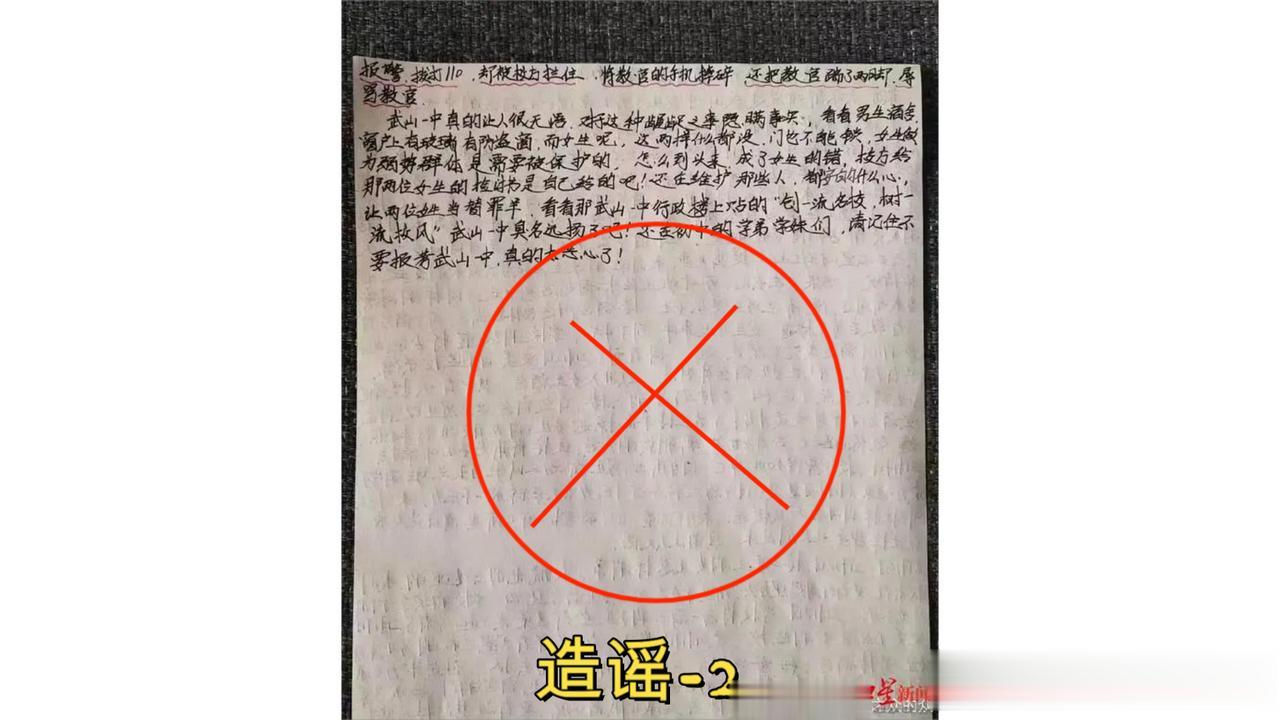 报警,拨打110,却被校方拦住,将教官的手机摔碎,还把教官踹了两脚,辱
骂教官.
武山一中真的让人很无语,对于这种龌龊之事既瞒事实,看看男生宿舍
窗户上有玻璃有防盗窗,而女生呢,这两样什么都没,门也不能锁,女生做
为弱势群体是需要被保护的,怎么到头来,成了女生的错,校方给
那两位女生的检讨书是自己给的吧!还在维护那些人,都安的什么心,
让两位女生当替罪羊,看看那武山一中行政楼上站的“创一流名校,树一
流校风”武山一中臭名远扬了吧!还在初中的学弟学妹们,请记住不
要报考武山一中,真的太恶心了!
造谣-2
星新闻